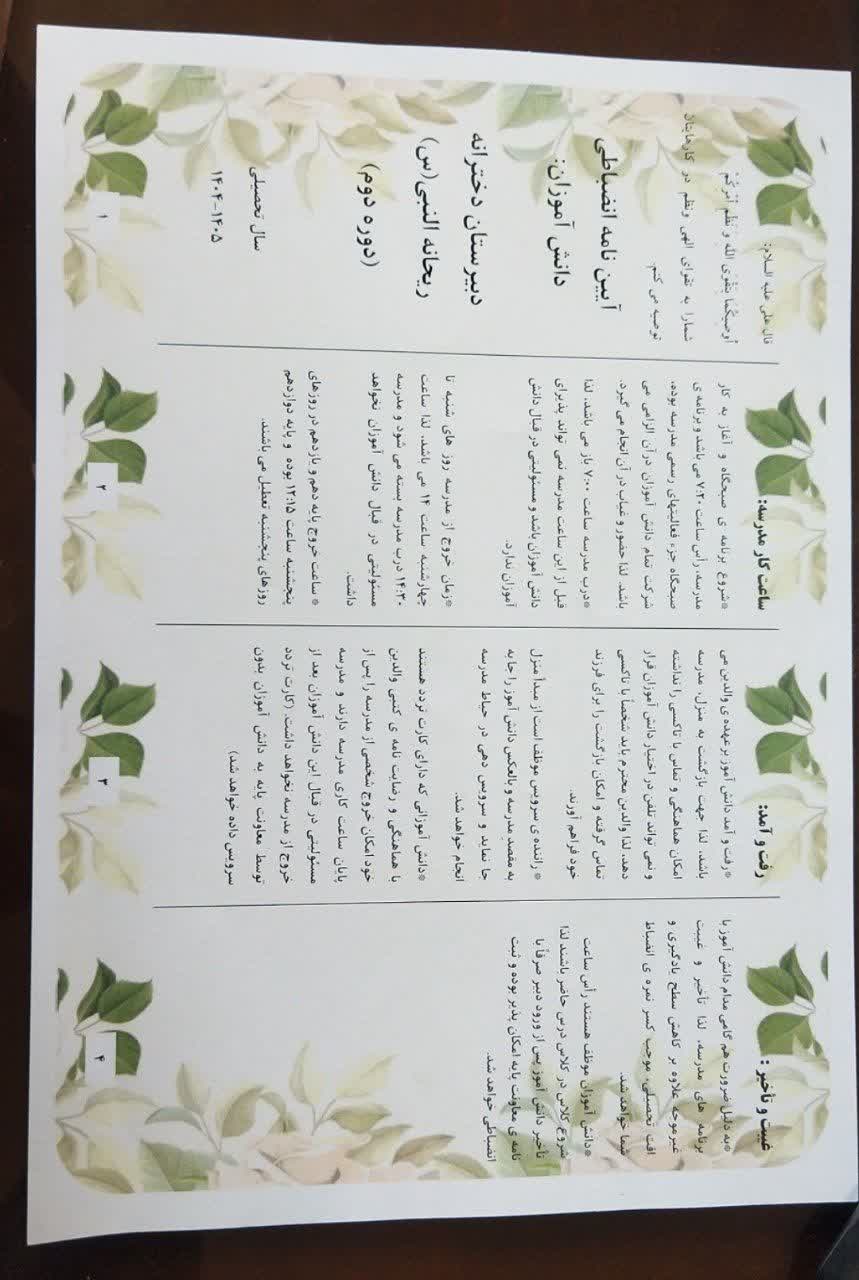 قال علی علیه السلام:
أوصیکُما بِتَقْوَی اللهِ وَ نَظْمِ أَمْرِکُمْ
شمارا به تقوای الهی ونظم در کارهایتان
توصیه می کنم.
آیین نامه انضباطی
دانش آموزان:
دبیرستان دخترانه
ریحانه النبی(س)
(دوره دوم)
سال تحصیلی
۱۴۰۴-۱۴۰۵
۱
ساعت کار مدرسه:
*شروع برنامه ی صبحگاه و آغاز به کار
مدرسه، رأس ساعت ۷:۲۰ می باشد و برنامه ی
صبحگاه جزء فعالیتهای رسمی مدرسه بوده،
شرکت تمام دانش آموزان درآن الزامی می
باشد. لذا حضور و غیاب در آن انجام می گیرد.
*درب مدرسه ساعت ۷:۰۰ باز می باشد. لذا
قبل از این ساعت مدرسه نمی تواند پذیرای
دانش آموزان باشد و مسئولیتی در قبال دانش
آموزان ندارد.
*زمان خروج از مدرسه روز های شنبه تا
چهارشنبه ساعت ۱۴ می باشد. لذا ساعت
۱۴:۳۰ درب مدرسه بسته می شود و مدرسه
مسئولیتی در قبال دانش آموزان نخواهد
داشت.
* ساعت خروج پایه دهم و یازدهم در روزهای
پنجشنبه ساعت ۱۲:۱۵ بوده و پایه دوازدهم
روزهای پنجشنبه تعطیل می باشند.
۲
رفت و آمد:
*رفت و آمد دانش آموز بر عهده ی والدین می
باشد. لذا جهت بازگشت به منزل، مدرسه
امکان هماهنگی و تماس با تاکسی را نداشته
و نمی تواند تلفن در اختیار دانش آموزان قرار
دهد. لذا والدین محترم باید شخصاً با تاکسی
تماس گرفته و امکان بازگشت را برای فرزند
خود فراهم آورند.
* راننده ی سرویس موظف است از مبدأ منزل
به مقصد مدرسه و بالعکس دانش آموز را جا به
جا نماید و سرویس دهی در حیاط مدرسه
انجام خواهد شد.
*دانش آموزانی که دارای کارت تردد هستند
با هماهنگی و رضایت نامه ی کتبی والدین
خود امکان خروج شخصی از مدرسه را پس از
پایان ساعت کاری مدرسه دارند و مدرسه
مسئولیتی در قبال این دانش آموزان بعد از
خروج از مدرسه نخواهد داشت. (کارت تردد
توسط معاونت پایه به دانش آموزان بدون
سرویس داده خواهد شد)
۳
غیبت و تأخیر :
*به دلیل ضرورت هم گامی مدام دانش آموز با
برنامه های مدرسه، لذا تأخیر و غیبت
غیرموجه علاوه بر کاهش سطح یادگیری و
افت تحصیلی، موجب کسر نمره ی انضباط
شما خواهد شد.
*دانش آموزان موظف هستند رأس ساعت
شروع کلاس در کلاس درس حاضر باشند لذا
تأخیر دانش آموز پس از ورود دبیر صرفاً با
نامه ی معاونت پایه امکان پذیر بوده و ثبت
انضباطی خواهد شد.
۴